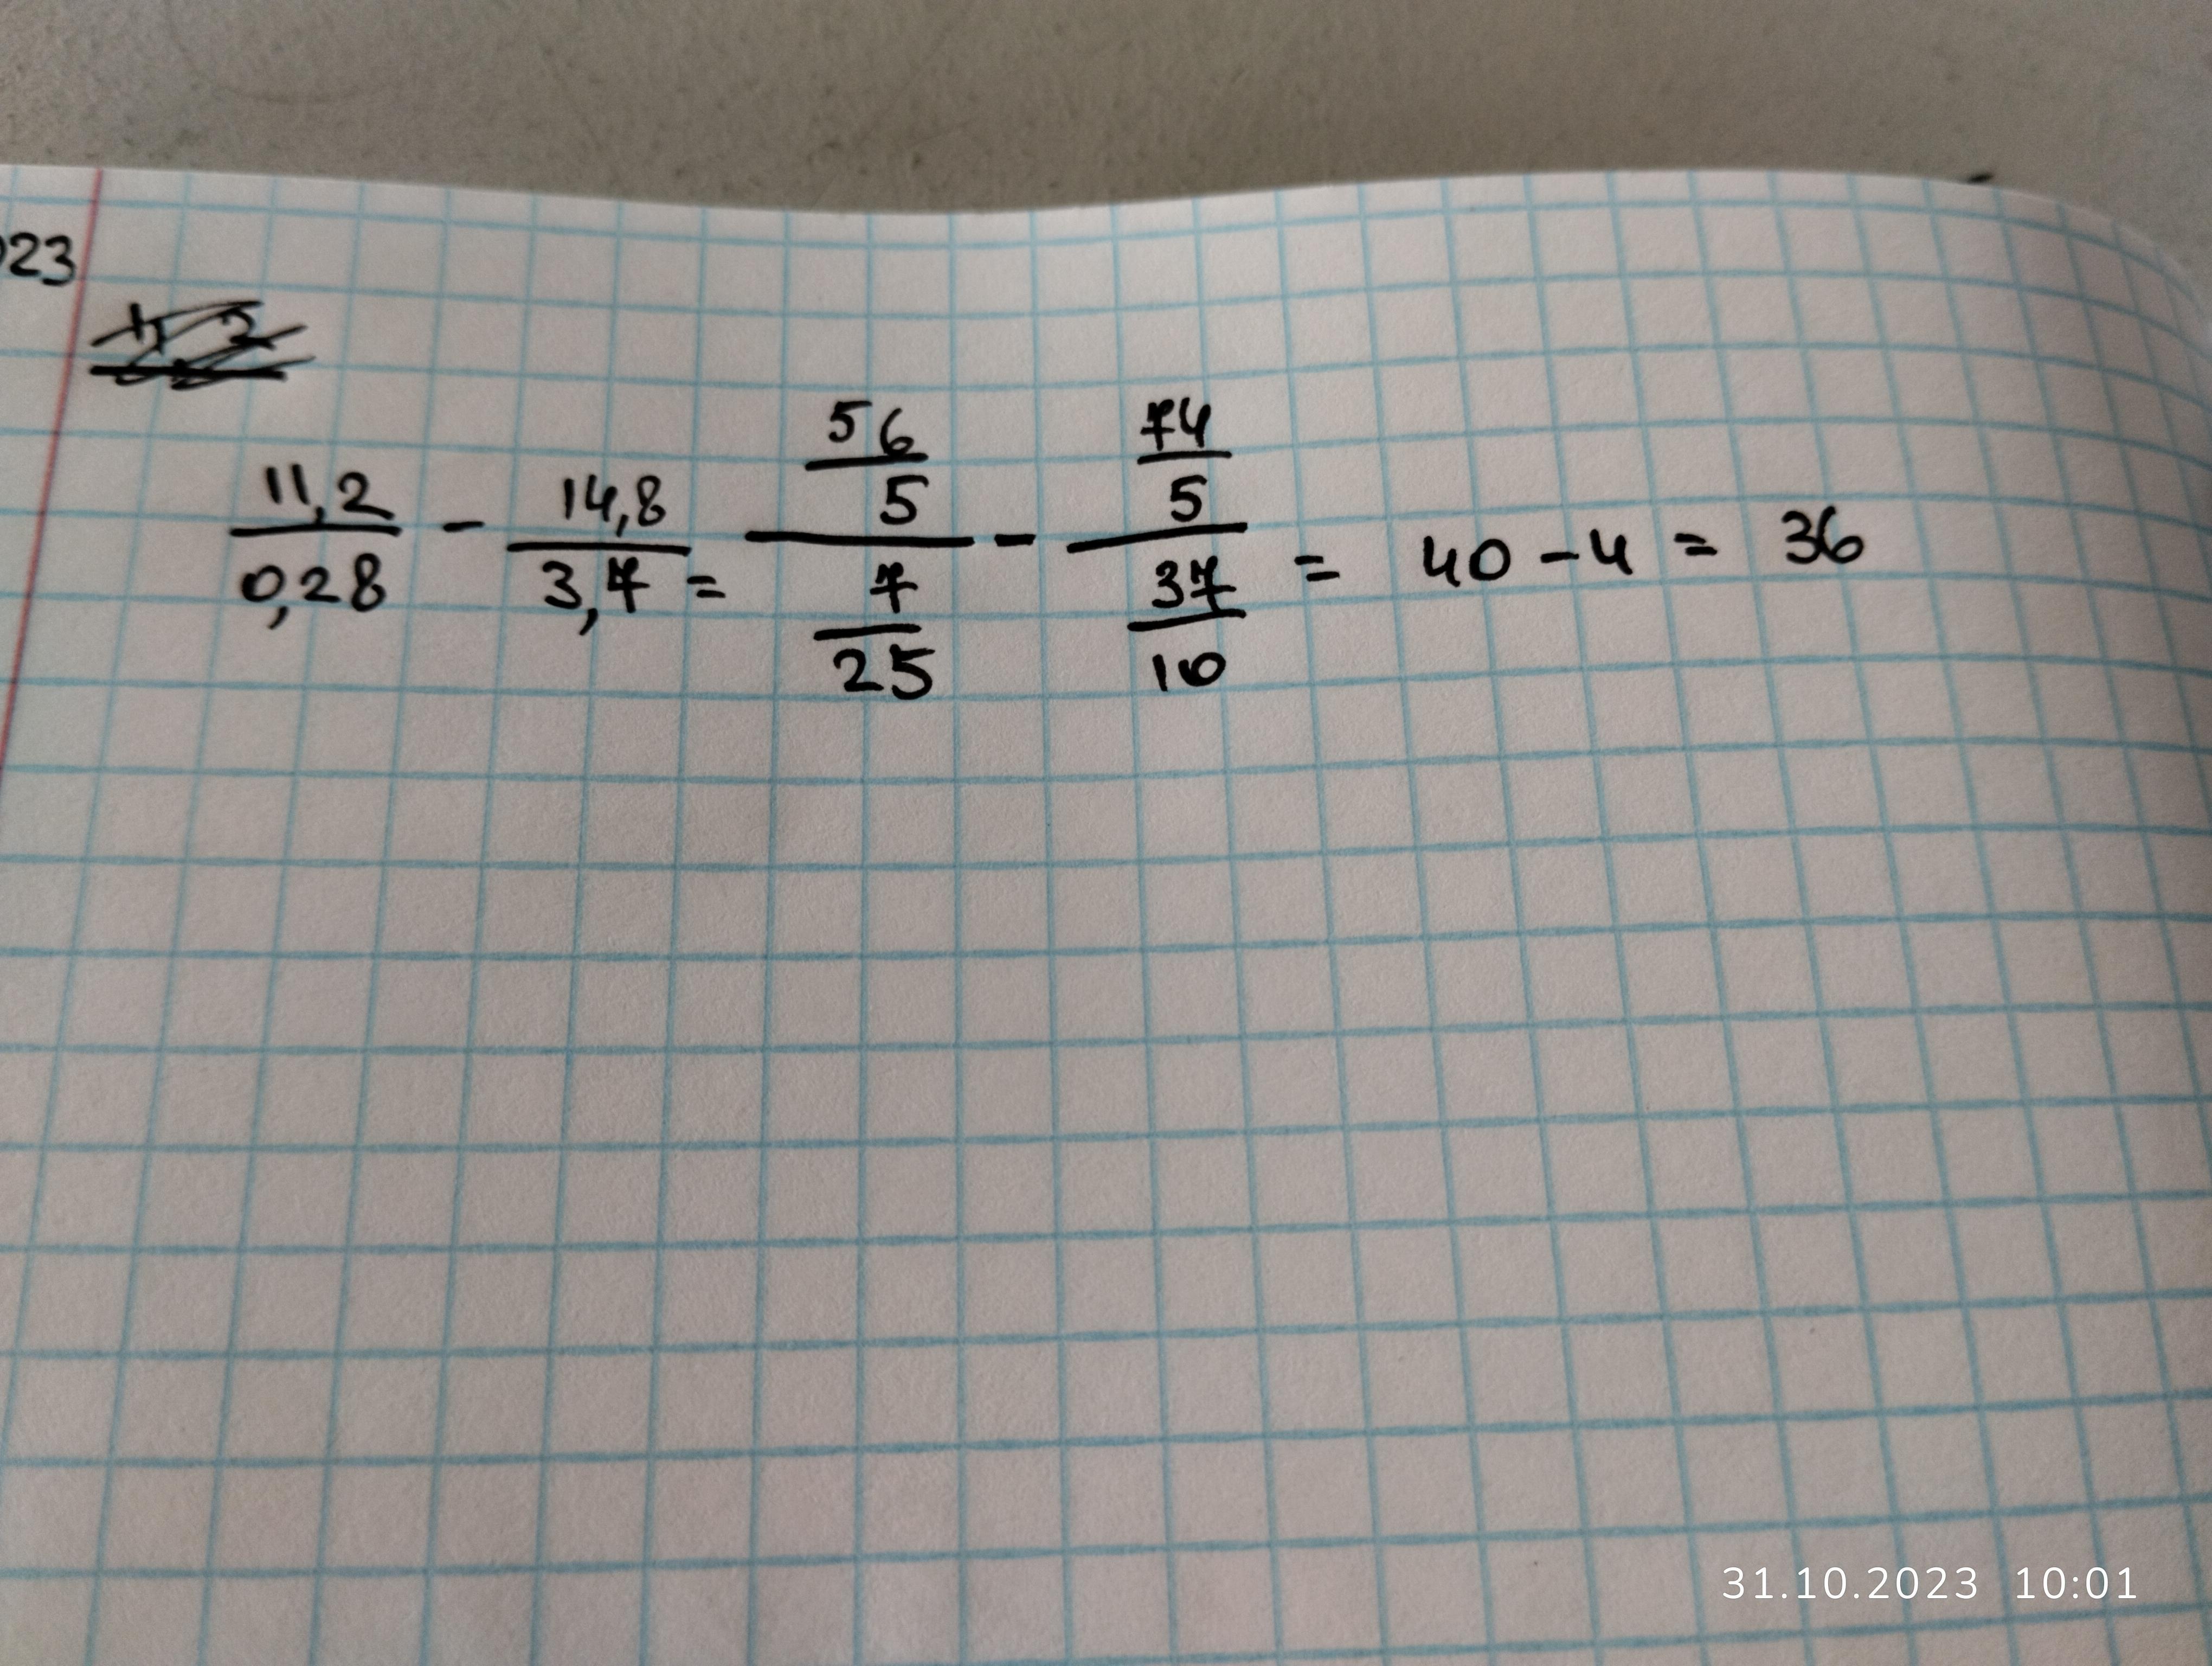 023
11,2/0,28 - 14,8/3,7 = (56/5)/(7/25) - (74/5)/(37/10) = 40 - 4 = 36
31.10.2023 10:01